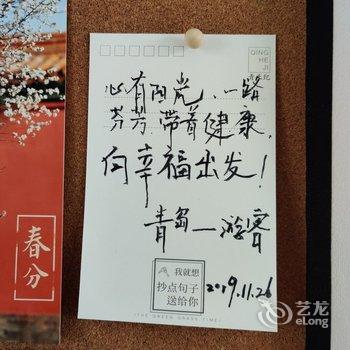 QING
HE
JI
心有阳光,一路
芬芳,带着健康,
向幸福出发!
青岛一游客
2019.11.26
我就想
抄点句子
送给你
(THE GREEN GRASS TIME)
春分
艺龙
eLong.com